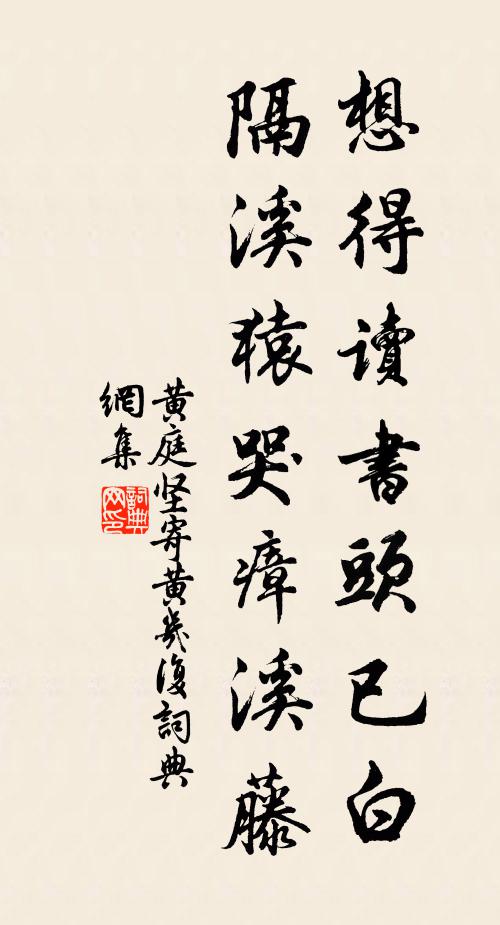 想得讀書頭已白
隔溪猿哭瘴溪藤
黃庭坚寄黃幾復詞典
網集
詞典
网印